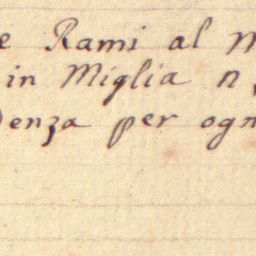 e Rami al M
in Miglia n
denza per ogn